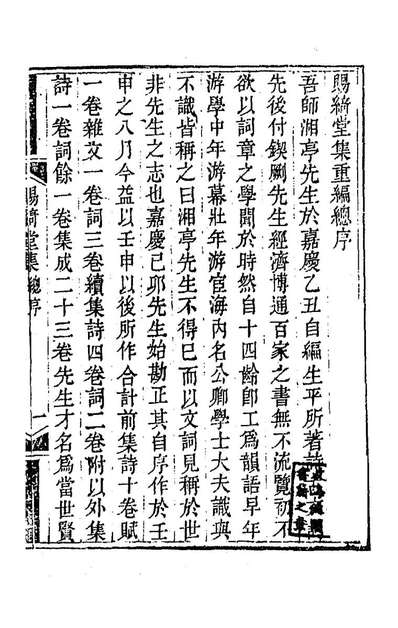 賜綺堂集重編總序
吾師湘亭先生於嘉慶乙丑自編生平所著詩
先後付鍥劂先生經濟博通百家之書無不流覽初不
欲以詞章之學聞於時然自十四齡卽工爲韻語早年
游學中年游幕壯年游宦海內名公卿學士大夫識與
不識皆稱之曰湘亭先生不得已而以文詞見稱於世
非先生之志也嘉慶己卯先生始勘正其自序作於壬
申之八月今益以壬申以後所作合計前集詩十卷賦
一卷雜文一卷詞三卷續集詩四卷詞二卷附以外集
詩一卷詞餘一卷集成二十三卷先生才名爲當世賢
賜綺堂集 總序
一